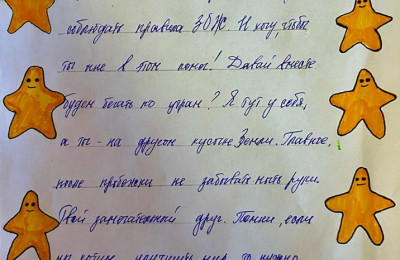 соблюдать правила ЗОЖ. И хочу, чтобы
ты мне в этом помог! Давай вместе
будем бегать по утрам? Я тут у себя,
а ты - на другом кусочке Земли. Главное,
после пробежки не забывать мыть руки.
Твой замечательный друг. Помни, если
мы хотим улучшить мир, то нужно